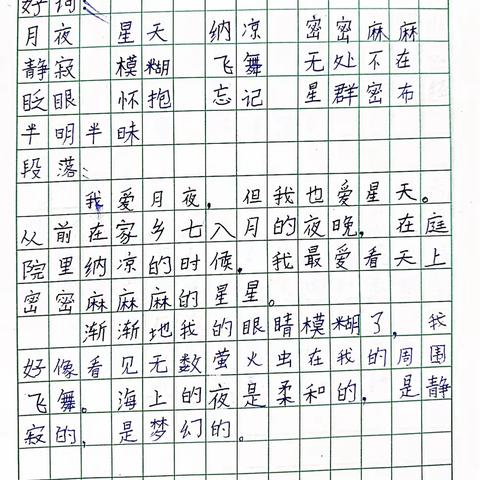 好词：
月夜 星天 纳凉 密密麻麻
静寂 模糊 飞舞 无处不在
眨眼 怀抱 忘记 星群密布
半明半昧
段落：
我爱月夜，但我也爱星天。
从前在家乡七八月的夜晚，在庭
院里纳凉的时候，我最爱看天上
密密麻麻麻的星星。
渐渐地我的眼睛模糊了，我
好像看见无数萤火虫在我的周围
飞舞。海上的夜是柔和的，是静
寂的，是梦幻的。